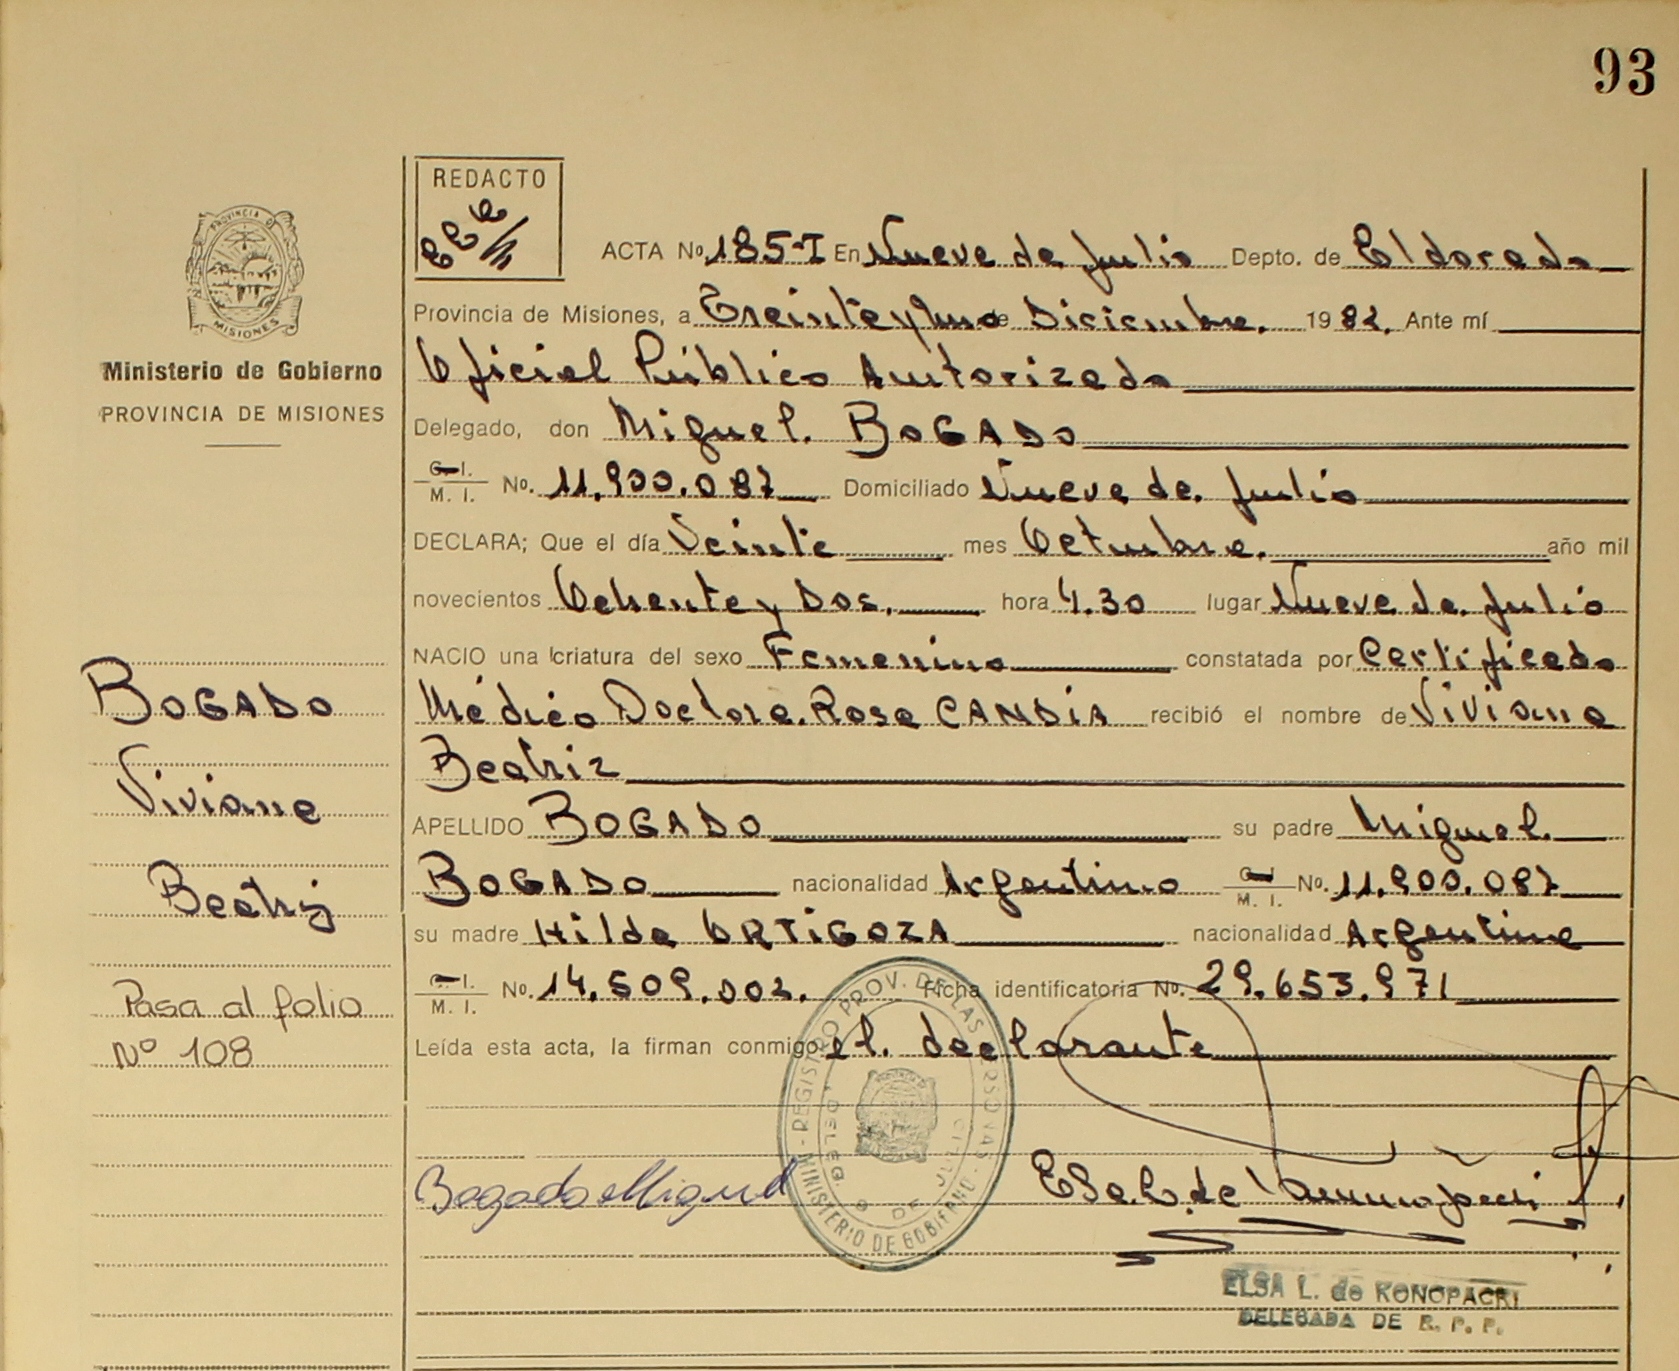 93
REDACTO
ACTA No. 185-I En Nueve de Julio Depto. de Eldorado
Provincia de Misiones, a Treinta y Uno de Diciembre. 1982. Ante mí
Oficial Público Autorizado
Delegado, don Miguel. BOGADO
C. I. M. I. No. 11.900.087 Domiciliado Nueve de Julio
DECLARA; Que el día Veinte mes Octubre. año mil
novecientos Ochenta y Dos. hora 4.30 lugar Nueve de Julio
NACIO una criatura del sexo Femenino constatada por Certificado
Médico Doctora. Rosa CANDIA recibió el nombre de Viviana
Beatriz
APELLIDO BOGADO su padre Miguel.
BOGADO nacionalidad Argentino C. I. M. I. No. 11.900.087
su madre Hilda ORTIGOZA nacionalidad Argentina
C. I. M. I. No. 14.509.002. Ficha identificatoria No. 29.653.971
Leída esta acta, la firman conmigo el. declarante
Bogado Miguel
ELSA L. de KONOPACKI
DELEGADA DE R. P. P.
REGISTRO PROV. DE LAS PERSONAS - MINISTERIO DE GOBIERNO -
DELEG. 9 DE JULIO
PROVINCIA DE
MISIONES
Ministerio de Gobierno
PROVINCIA DE MISIONES
BOGADO
Viviana
Beatriz
Pasa al folio
Nº 108